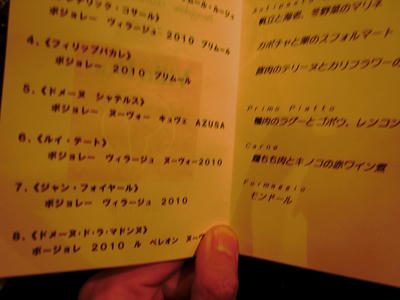 ボジョレー ヴィラージュ 2010 プリムール
4.《フィリップパカレ》
ボジョレー 2010 プリムール
5.《ドメーヌ シャテルス》
ボジョレー ヌーヴォー キュヴェ AZUSA
6.《ルイ・テート》
ボジョレー ヴィラージュ ヌーヴォー2010
7.《ジャン・フォイヤール》
ボジョレー ヴィラージュ 2010
8.《ドメーヌ・ド・ラ・マドンヌ》
ボージョレ 2010 ル ペレオン ヌーヴ
Antipasto
帆立と海老、冬野菜のマリネ
カボチャと栗のスフォルマート
豚肉のテリーヌとカリフラワーの
Primo Piatto
鴨肉のラグーとゴボウ、レンコン
Carne
鶏もも肉とキノコの赤ワイン煮
Formaggio
モンドール